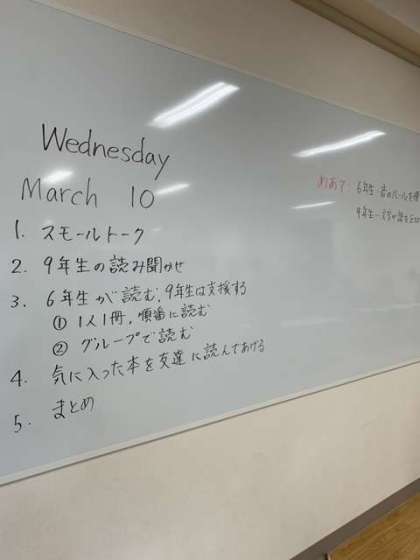 Wednesday
March 10
1. スモールトーク
2. 9年生の読み聞かせ
3. 6年生が読む、9年生は支援する
① 1人1冊、順番に読む
② グループで読む
4. 気に入った本を友達に読んであげる
5. まとめ
めあて: 6年生…音のルールを
9年生…